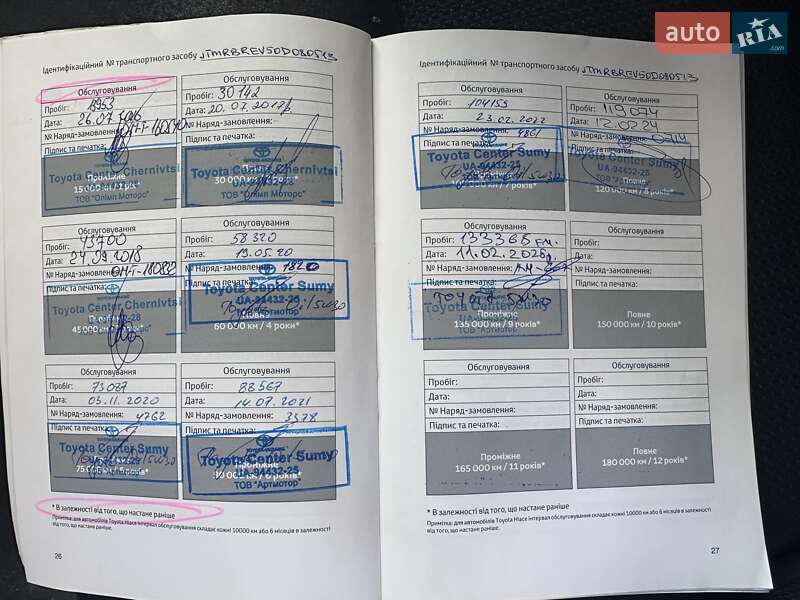 auto RIA .com
Ідентифікаційний № транспортного засобу JTMRBREV50D080513
Обслуговування
Пробіг:
Дата: 26.07.
№ Наряд-замовлення:
Підпис та печатка:
Toyota Center Chernivtsi
15 000 км /
ТОВ "Олімп Моторс"
Обслуговування
Пробіг: 30142
Дата: 20.07.2017
№ Наряд-замовлення:
Підпис та печатка:
Toyota Center Chernivtsi
UA-94432-28
30 000 км /
ТОВ "Олімп Моторс"
Обслуговування
Пробіг: 43700
Дата: 24.09.2018
№ Наряд-замовлення:
Підпис та печатка:
Toyota Center Chernivtsi
45 000 км /
ТОВ "Олімп Моторс"
Обслуговування
Пробіг: 58320
Дата: 19.05.20
№ Наряд-замовлення: 1820
Підпис та печатка:
Toyota Center Sumy
UA-94432-25
Повне
60 000 км / 4 роки*
ТОВ "Артмотор"
Обслуговування
Пробіг: 73087
Дата: 03.11.2020
№ Наряд-замовлення: 4762
Підпис та печатка:
Toyota Center Sumy
75 000 км /
Обслуговування
Пробіг: 88567
Дата: 14.07.2021
№ Наряд-замовлення: 3378
Підпис та печатка:
Toyota Center Sumy
UA-94432-25
ТОВ "Артмотор"
* В залежності від того, що настане раніше
Примітка: для автомобілів Toyota Hiace інтервал обслуговування складає кожні 10000 км або 6 місяців в залежності
від того, що настане раніше.
26
Ідентифікаційний № транспортного засобу JTMRBREV50D080513
Обслуговування
Пробіг: 104155
Дата: 23.02.2022
№ Наряд-замовлення: 4861
Підпис та печатка:
Toyota Center Sumy
UA-94432-25
км / 7 років*
Обслуговування
Пробіг: 119074
Дата: 12.02.24
№ Наряд-замовлення: 0714
Підпис та печатка:
Toyota Center Sumy
UA-94432-25
Повне
120 000 км / 8 років*
Обслуговування
Пробіг: 133368 км.
Дата: 11.02.2026
№ Наряд-замовлення:
Підпис та печатка:
Toyota Center Sumy
Проміжне
135 000 км / 9 років*
Обслуговування
Пробіг:
Дата:
№ Наряд-замовлення:
Підпис та печатка:
Повне
150 000 км / 10 років*
Обслуговування
Пробіг:
Дата:
№ Наряд-замовлення:
Підпис та печатка:
Проміжне
165 000 км / 11 років*
Обслуговування
Пробіг:
Дата:
№ Наряд-замовлення:
Підпис та печатка:
Повне
180 000 км / 12 років*
* В залежності від того, що настане раніше
Примітка: для автомобілів Toyota Hiace інтервал обслуговування складає кожні 10000 км або 6 місяців в залежності
від того, що настане раніше.
27